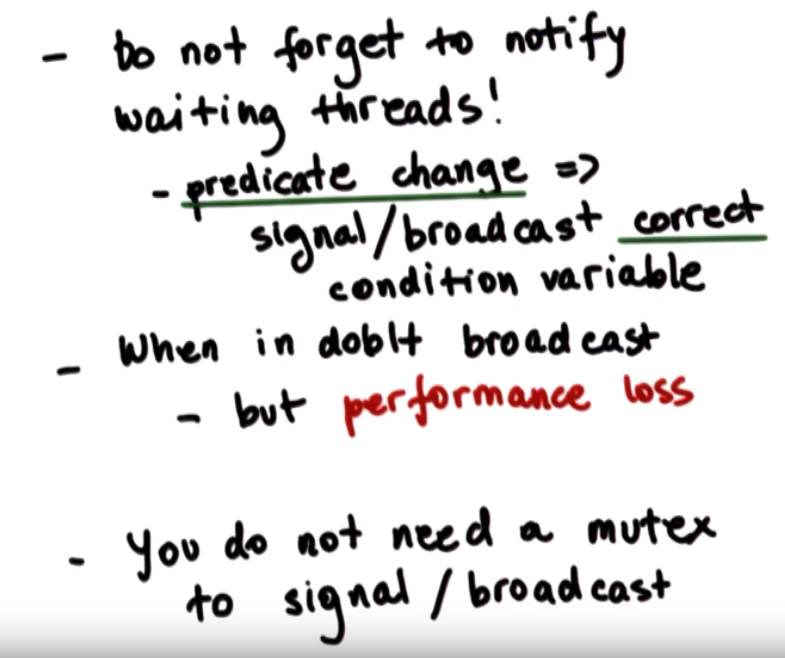 - Do not forget to notify
waiting threads!
- predicate change =>
signal/broadcast correct
condition variable
- When in doblt broadcast
- but performance loss
- You do not need a mutex
to signal / broadcast